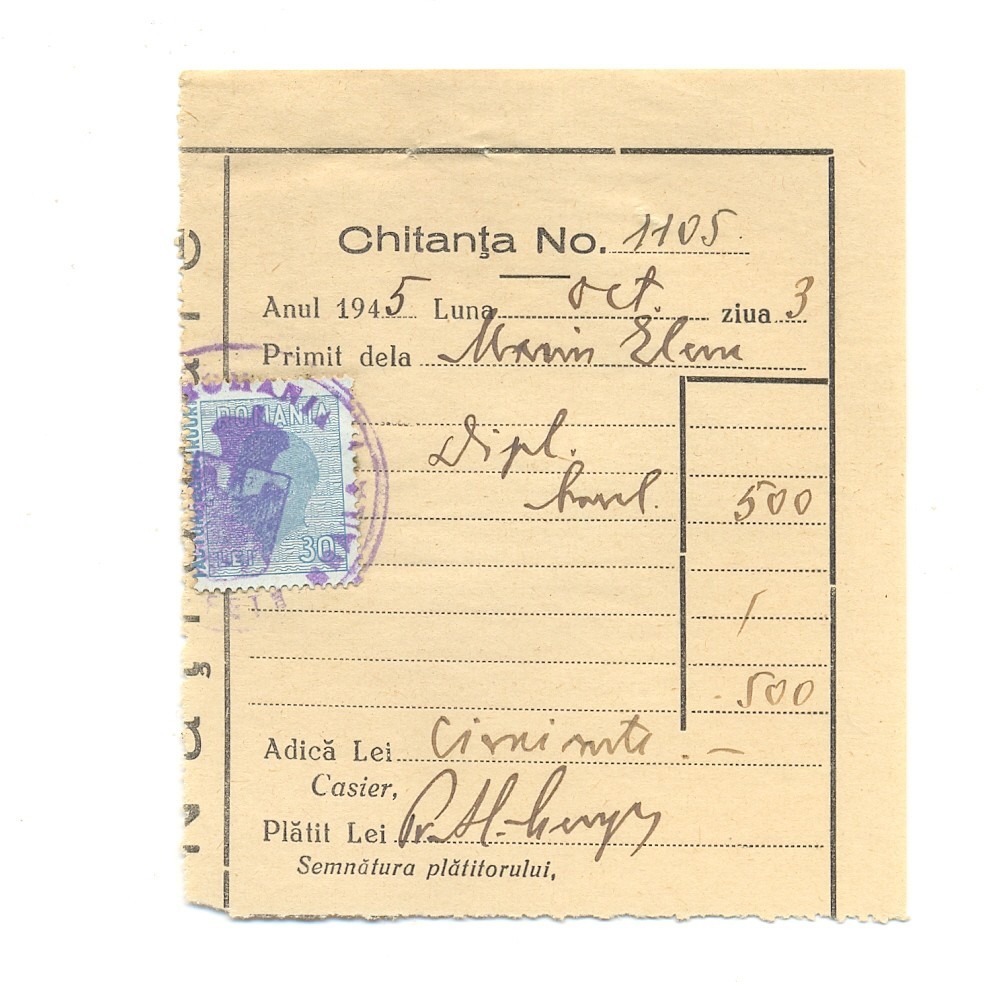 Chitanţa No. 1105
Anul 1945 Luna oct. ziua 3
Primit dela Marin Elena
ROMANIA
ROMANIA
Dipl.
bacal. 500
LEI 30
500
Adică Lei Cinci sute.—
Casier,
Plătit Lei
Semnătura plătitorului,